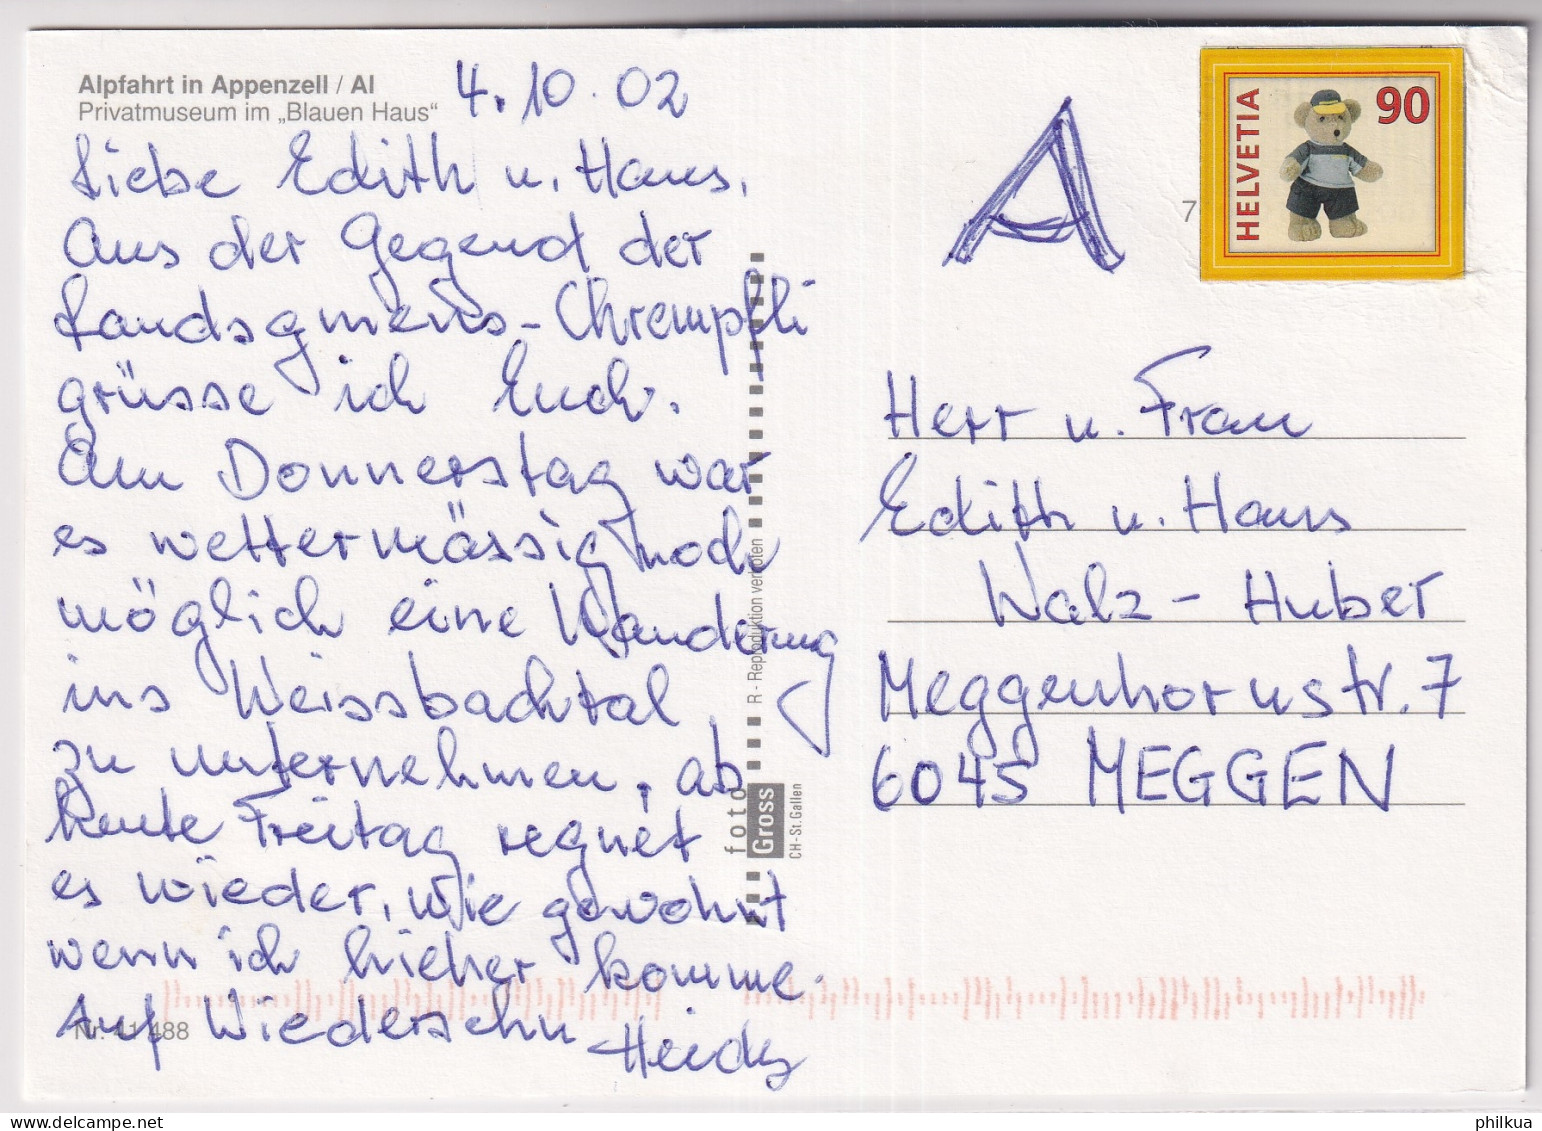 Alpfahrt in Appenzell / AI
Privatmuseum im „Blauen Haus“
4.10.02
Liebe Edith u. Hans,
Aus der Gegend der
Landsgmeins-Chrempfli
grüsse ich Euch.
Am Donnerstag war
es wettermässig noch
möglich eine Wanderung
ins Weissbachtal
zu unternehmen, ab
heute Freitag regnet
es wieder, wie gewohnt
wenn ich hieher komme.
Auf Wiedersehn
Heidy
Nr. 41 488
R - Reproduktion verboten
foto
Gross
CH - St. Gallen
A
7
HELVETIA
90
Herr u. Frau
Edith u. Hans
Walz - Huber
Meggenhornstr. 7
6045 MEGGEN
philkua